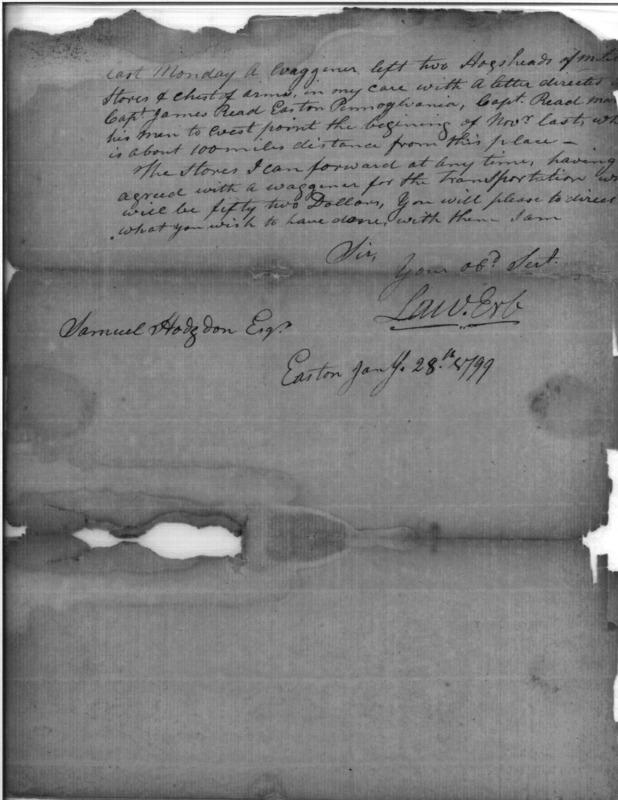 Last Monday A Waggener left two Hogsheads of
Stores & chest of arms, in my care with A letter directed
Capt. James Read Easton Pennsylvania, Capt. Read
his men to West point the begining of Novr. last, wh
is about 100 miles distance from this place —
The Stores I can forward at any time, having
agreed with a waggener for the transportation
will be fifty two Dollars, You will please to direct
what you wish to have done, with them I am
Sir,
Your obd. Sert.
Law. Erb
Samuel Hodgdon Esqr.
Easton Jany. 28.th 1799